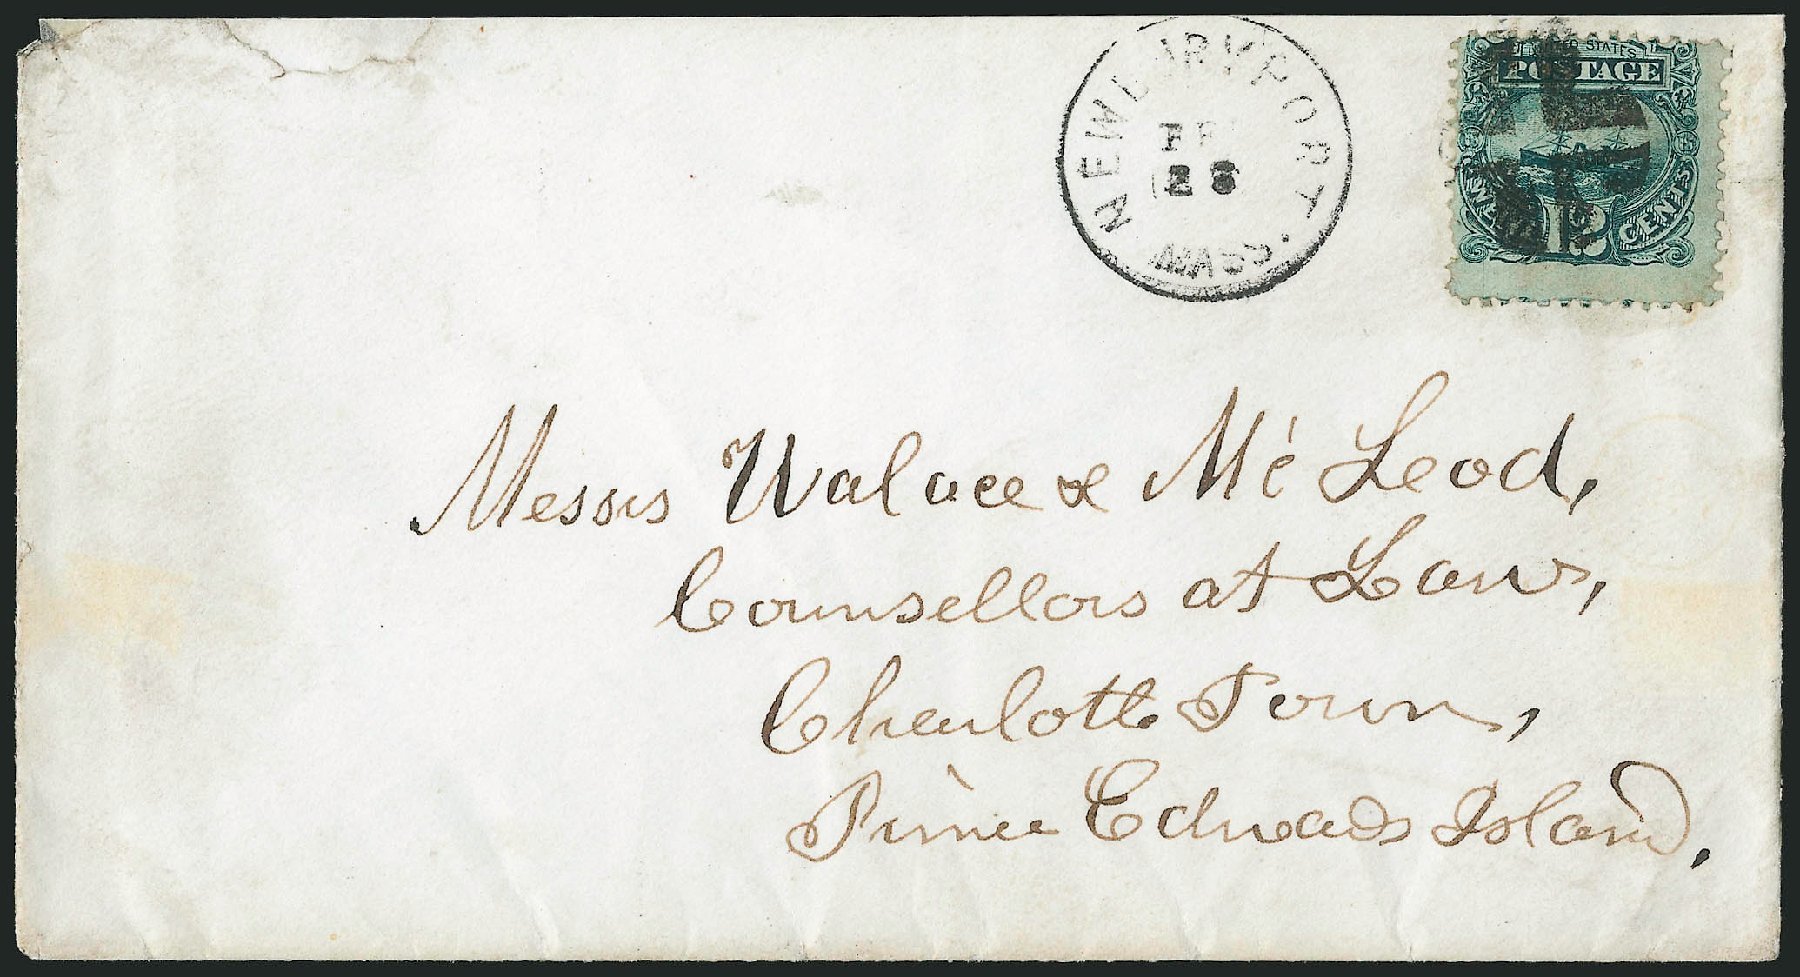 NEWBURYPORT
MASS.
FEB
28
UNITED STATES
POSTAGE
TWELVE 12 CENTS
Messrs Walace & Mc Leod,
Counsellors at Law,
Charlotte Town,
Prince Edwads Island.